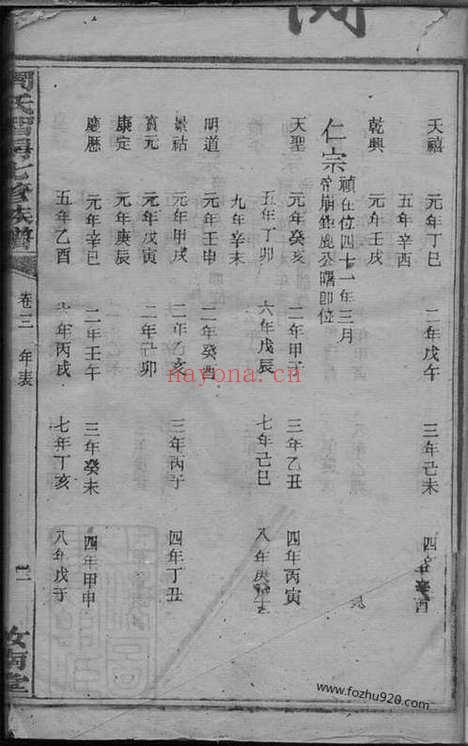 天禧 元年丁巳 二年戊午 三年己未 四
五年辛酉
乾興 元年壬戌
仁宗 禎在位四十一年三月
帝崩鉅鹿公曙即位
天聖 元年癸亥 二年甲子 三年乙丑 四年丙寅
五年丁卯 六年戊辰 七年己巳 八年庚
九年辛未
明道 元年壬申 二年癸酉
景祐 元年甲戌 二年乙亥 三年丙子 四年丁丑
寳元 元年戊寅 二年己卯
康定 元年庚辰
慶歷 元年辛巳 二年壬午 三年癸未 四年甲申
五年乙酉 六年丙戌 七年丁亥 八年戊子
周氏 七修族譜
卷三 年表
二
汝南堂
nayona.cn
www.fozhu920.com